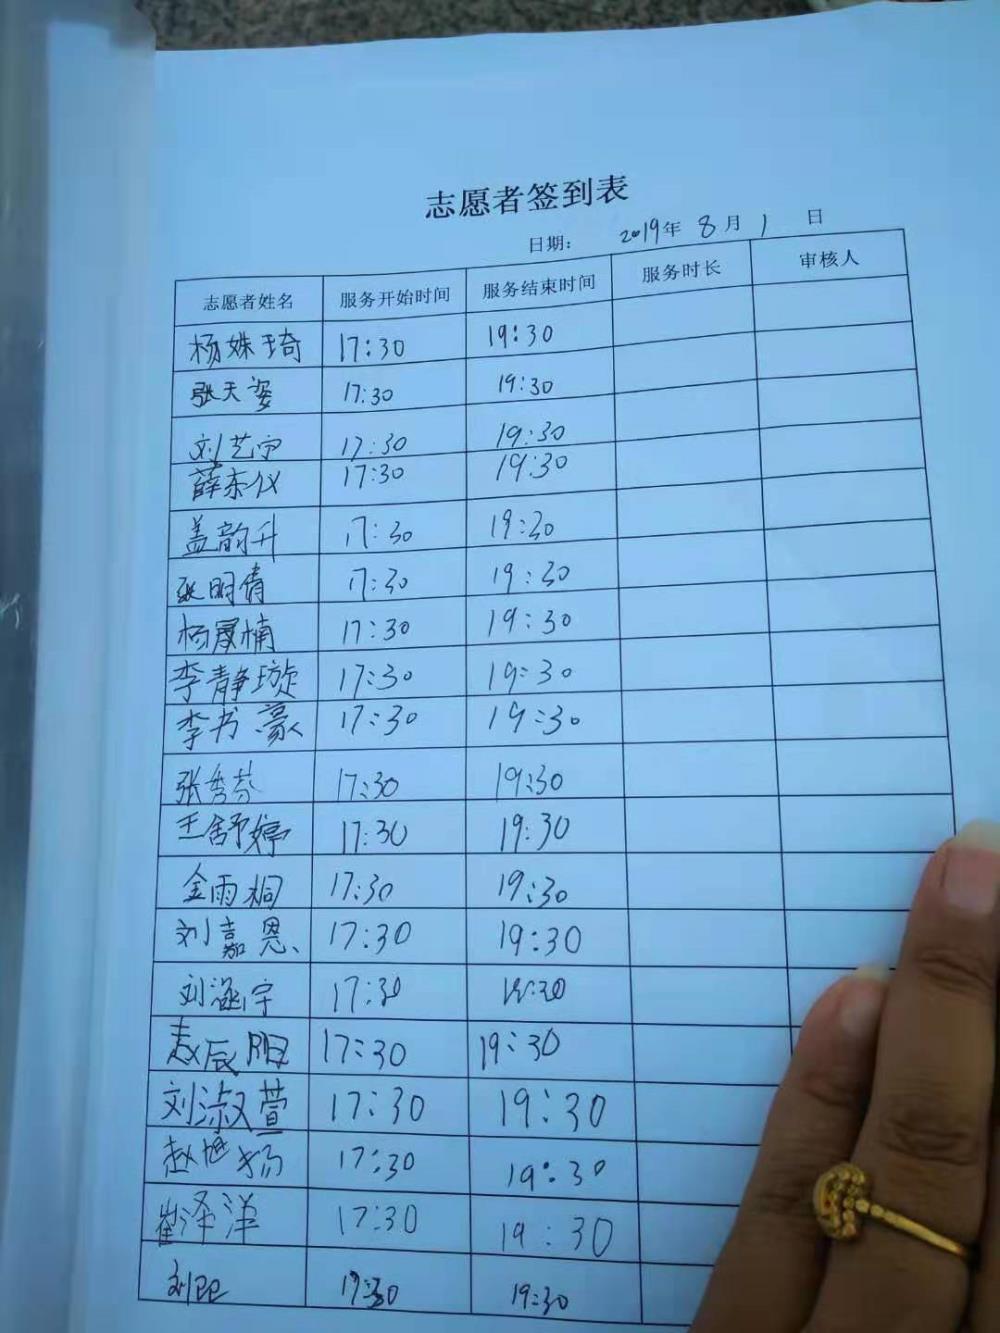 志愿者签到表
日期: 2019年 8月 1 日
志愿者姓名 服务开始时间 服务结束时间 服务时长 审核人
杨姝琦 17:30 19:30
张天姿 17:30 19:30
刘艺宁 17:30 19:30
薛东仪 17:30 19:30
盖韵升 17:30 19:30
张明倩 17:30 19:30
杨景楠 17:30 19:30
李静璇 17:30 19:30
李书豪 17:30 19:30
张秀芬 17:30 19:30
王舒婷 17:30 19:30
金雨桐 17:30 19:30
刘嘉恩 17:30 19:30
刘涵宇 17:30 19:30
辰阳 17:30 19:30
刘淑萱 17:30 19:30
赵旭扬 17:30 19:30
崔泽洋 17:30 19:30
刘熙 17:30 19:30